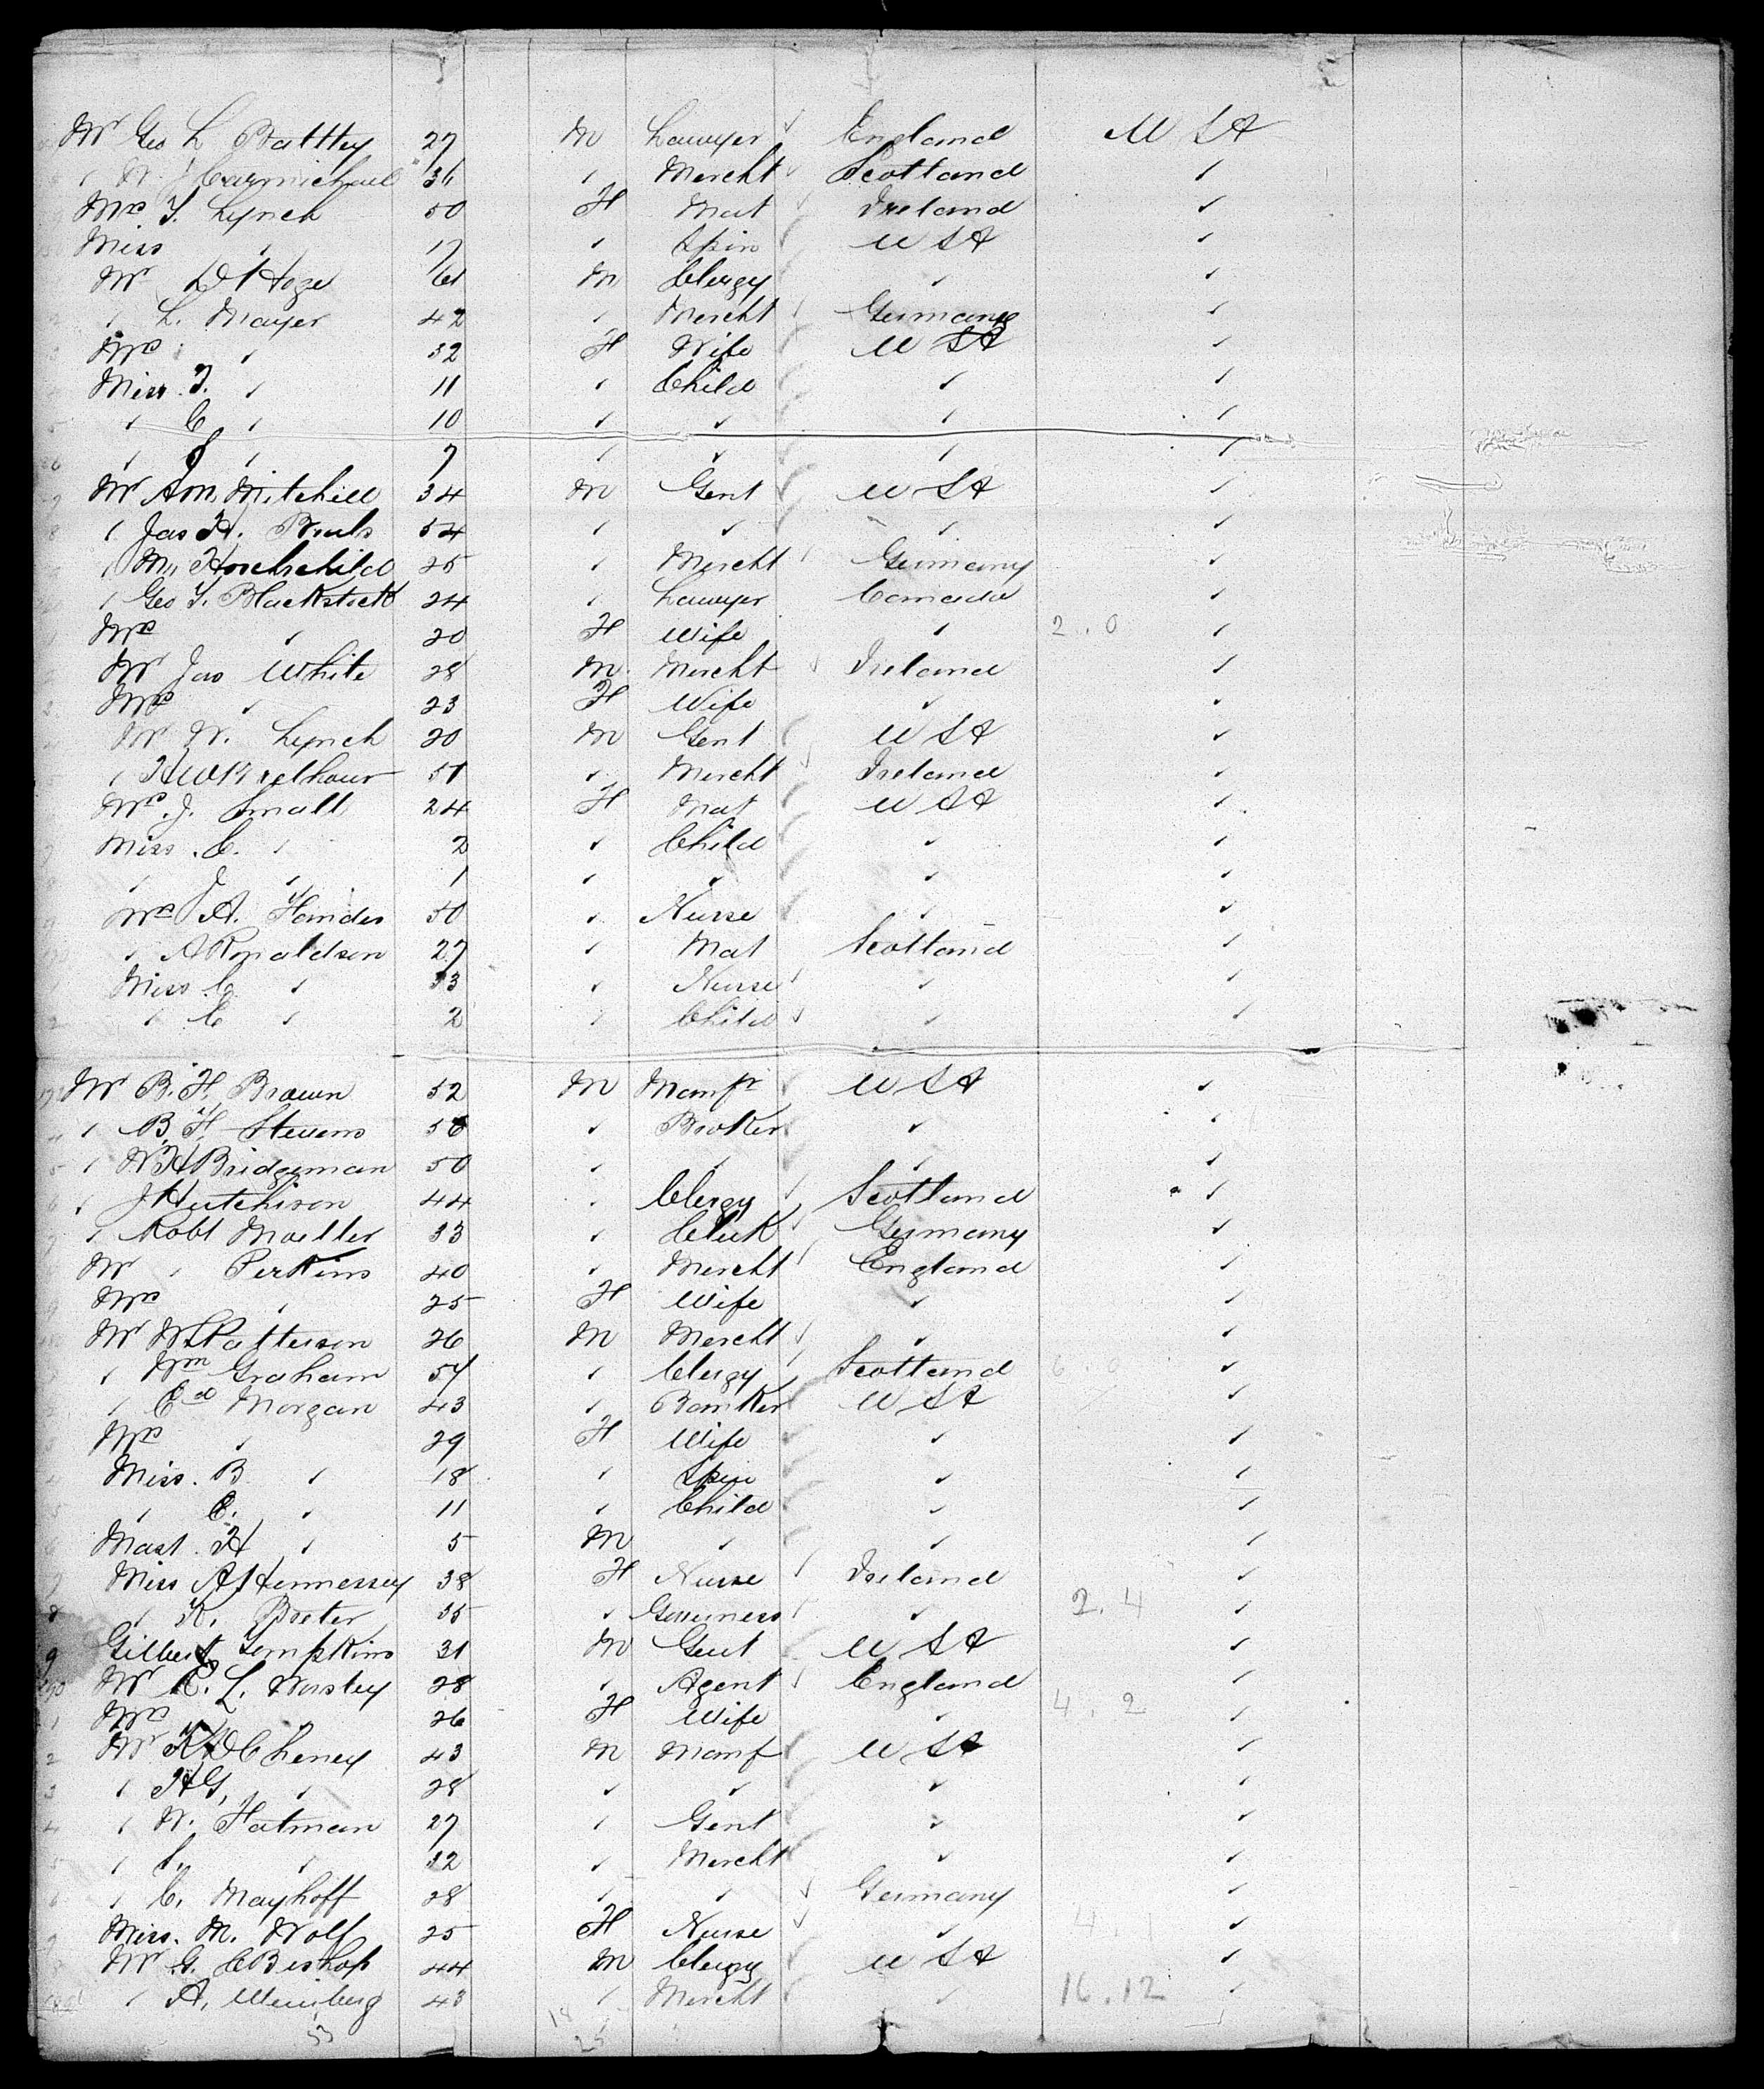 Mr Geo L Battley 27 M Lawyer England U S A
" W. J Carmichael 36 " Mercht Scotland "
Mrs T. Lynch 50 F Mat Ireland "
Miss " 17 " Spin U S A "
Mr D Hoge 61 M Clergy " "
" L. Mayer 42 " Mercht Germany "
Mrs " 32 F Wife U S A "
Miss T. " 11 " Child " "
" C " 10 " " " "
" J " 7 " " " "
Mr Am. Mitchell 34 M Gent U S A "
" Jas H. 54 " " " "
" M. Hochschild 25 " Mercht Germany "
" Geo T. Blackstock 24 " Lawyer Canada "
Mrs " 20 F Wife " 2.0 "
Mr Jas White 28 M. Mercht Ireland "
Mrs " 23 F Wife " "
Mr W. Lynch 20 M Gent U S A "
" 51 " Mercht Ireland "
Mrs. J. Small 24 F Mat U S A "
Miss. C. " 2 " Child " "
" J " 1 " " " "
Mrs A. 50 " Nurse " "
" A Ronaldson 27 " Mat Scotland "
Miss C. " 33 " Nurse " "
" C " 2 " Child " "
Mr B. F. Brown 52 M Manfr U S A "
" B. F. Stevens 50 " Broker " "
" W H Bridgeman 50 " " " "
" J Hutchison 44 " Clergy Scotland "
" Robt Moeller 33 " Clerk Germany "
Mr " Perkins 40 " Mercht England "
Mrs " 25 F Wife " "
Mr W L Patterson 26 M Mercht " "
" Wm Graham 54 " Clergy Scotland "
" Ed Morgan 43 " Banker U S A "
Mrs " 29 F Wife " "
Miss. B " 18 " Spin " "
" C. " 11 " Child " "
Mast. H " 5 M " " "
Miss A Hennessey 38 F Nurse Ireland "
" K. Porter 35 " Governess " 2.4 "
Gilbert Tompkins 31 M Gent U S A "
Mr R. L. Worsley 28 " Agent England "
Mrs " 26 F Wife " 4.2 "
Mr K D Cheney 43 M Manf U S A "
" H G, " 28 " " " "
" W. Fatman 27 " Gent " "
" S. " 32 " Mercht " "
" C. Mayhoff 28 " " Germany "
Miss. M. Wolf 25 F Nurse " 4. "
Mr G. C Bishop 44 M Clergy U S A "
" A. Weinberg 43 " Mercht " 16.12 "
53 18 25